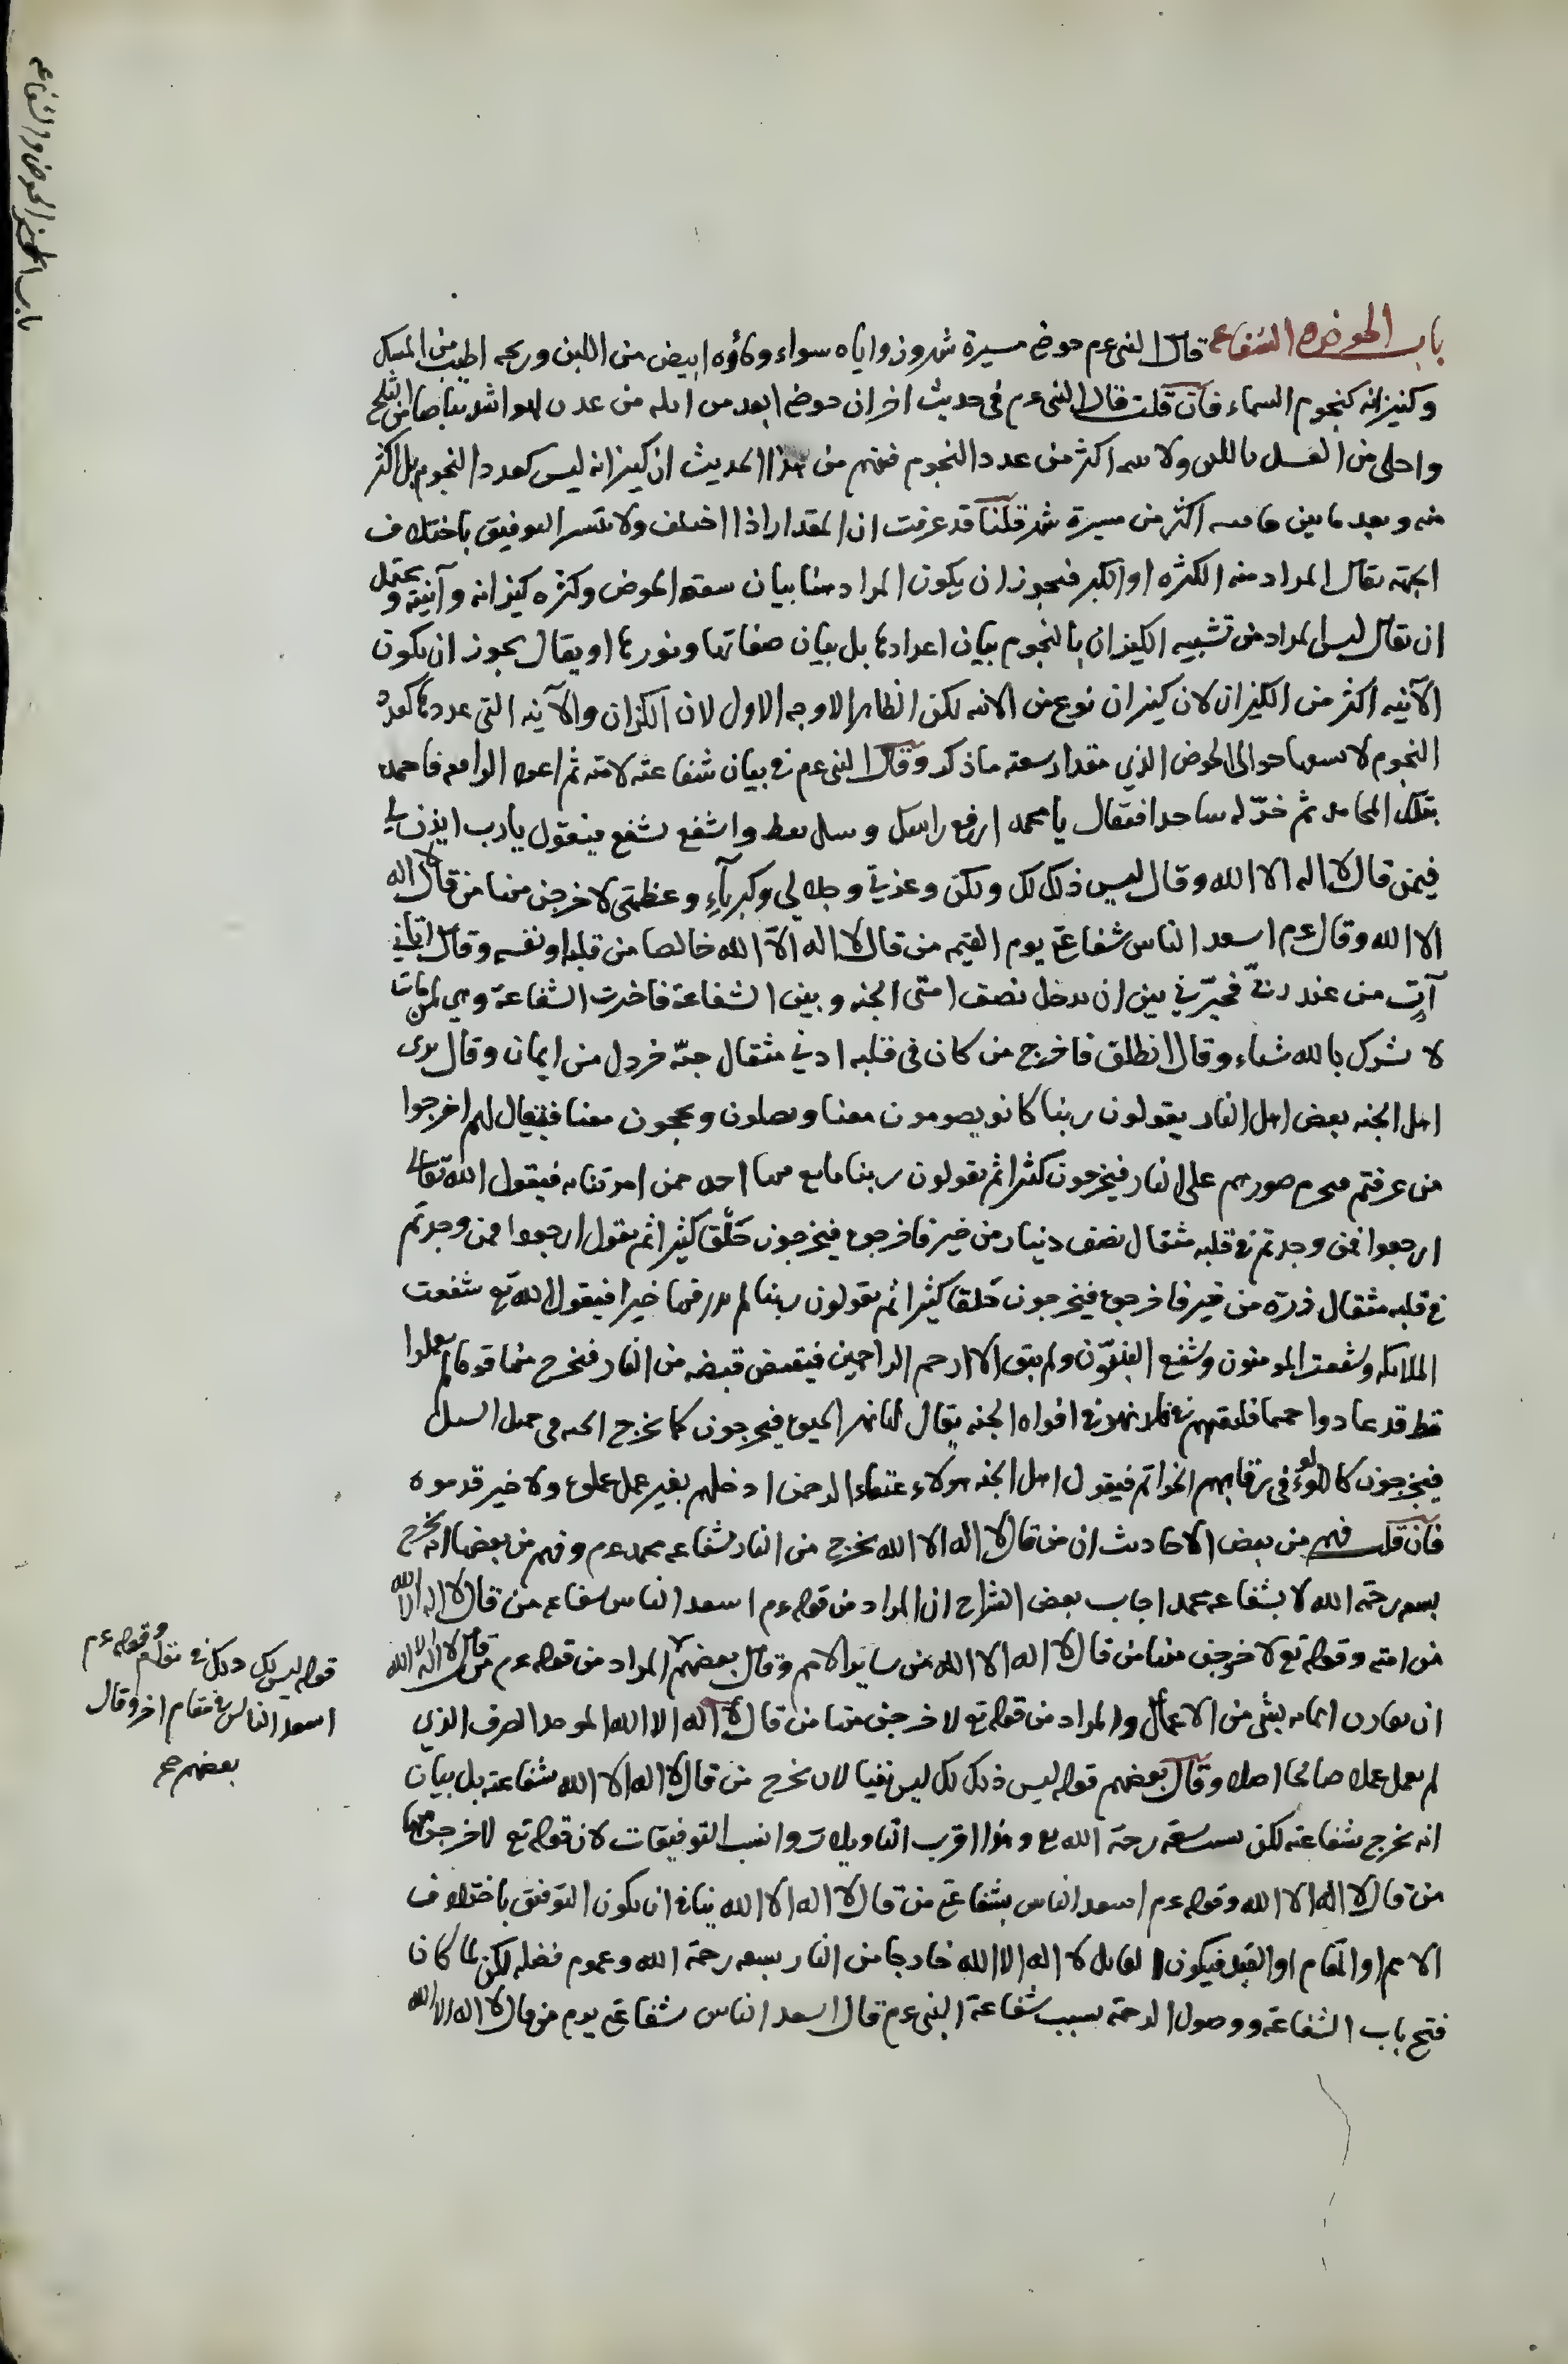 باب الحوض والشفاعة
باب الحوض والشفاعة قال النبي عم حوضي مسيرة شهر وزواياه سواء وماؤه ابيض من اللبن وريحه اطيب من المسك
وكيزانه كنجوم السماء فان قلت قال النبي عم في حديث اخر ان حوضي ابعد من ايله من عدن لهو اشد بياضا من الثلج
واحلى من العسل باللبن ولانيته اكثر من عدد النجوم ففهم من هذا الحديث ان كيزانه ليس كعدد النجوم بل اكثر
منه وبعد ما بين جانبيه اكثر من مسيرة شهر قلنا قد عرفت ان المقدار اذا اختلف ولا تيسر التوفيق باختلاف
الجهة يقال المراد منه الكثره او الكبر فيجوز ان يكون المراد هنا بيان سعة الحوض وكثره كيزانه وآنيته ويحتمل
ان يقال ليس المراد من تشبيه الكيزان بالنجوم بيان اعدادها بل بيان صفائها ونورها او يقال يجوز ان يكون
الآنيه اكثر من الكيزان لان كيزان نوع من الانيه لكن الظاهر الاوجه الاول لان الكزان والآنيه التي عددها كعدد
النجوم لا يسعها حوالى الحوض الذي مقدار سعته ما ذكر وقال النبي عم في بيان شفاعته لامته ثم اعود الرابعه فاحمده
بتلك المحامد ثم خرّ له ساجدا فيقال يا محمد ارفع راسك وسل تعط واشفع تشفع فيقول يا رب ايذن لي
فيمن قال لا اله الا الله وقال ليس ذلك لك ولكن وعزتي وجلالي وكبريآءِ وعظمتى لاخرجن منها من قال لا اله
الا الله وقال عم اسعد الناس شفاعتي يوم القيمه من قال لا اله الاّ الله خالصا من قلبه او نفسه وقال اتاني
آتٍ من عند ربي فخيّرني بين ان يدخل نصف امتى الجنه وبين الشفاعة فاخترت الشفاعة وهي لمن مات
لا يشرك بالله شياء وقال انطلق فاخرج من كان فى قلبه ادني مثقال حبّه خردل من ايمان وقال يرى
اهل الجنه بعض اهل النار يقولون ربنا كانو يصومون معنا ويصلون ويحجون معنا فيقال لهم اخرجوا
من عرفتم فيحرم صورهم على النار فيخرجون كثيرا ثم يقولون ربنا ما بقي فيها احد ممن امرتنا به فيقول الله تعالى
ارجعوا فمن وجدتم في قلبه مثقال نصف دينار من خير فاخرجوه فيخرجون خَلْقا كثيرا ثم يقول ارجعوا فمن وجدتم
في قلبه مثقال ذرّه من خير فاخرجوه فيخرجون خَلقا كثيرا ثم يقولون ربنا لم نذر فيها خيرا فيقول الله تع شفعت
الملائكه وشفعت المومنون وشفع النبيّون ولم يبق الا ارحم الراحمين فيقبض قبضه من النار فيخرج منها قوما لم يعملوا
قط قد عادوا حمما فيلقيهم في نهر في افواه الجنه يقال له نهر الحيوة فيخرجون كما يخرج الحبه في حميل السيل
فيخرجون كاللؤلؤ فى رقابهم الخواتم فيقول اهل الجنه هولاء عتقاء الرحمن ادخلهم بغير عمل عملوه ولا خير قدموه
فان قلت فهم من بعض الاحاديث ان من قال لا اله الا الله يخرج من النار بشفاعه محمد عم وفهم من بعضها انه يخرج
بسعه رحمة الله لا بشفاعه محمد اجاب بعض الشراح ان المراد من قوله عم اسعد الناس بشفاعه من قال لا اله الا الله
من امته وقوله تع لاخرجن منها من قال لا اله الا الله من ساير الامم وقال بعضهم المراد من قوله عم من قال لا اله الا الله
ان يقارن ايمانه بشى من الاعمال والمراد من قوله تع لاخرجن منها من قال لا اله الا الله الموحد الصرف الذي
لم يعمل عملا صالحا اصلا وقال بعضهم قوله ليس ذلك لك ليس نفيا لان يخرج من قال لا اله الا الله بشفاعته بل بيان
انه يخرج بشفاعته لكن بسبب سعة رحمة الله تع وهذا اقرب التاويلات وانسب التوفيقات لان قوله تع لاخرجن منها
من قال لا اله الا الله وقوله عم اسعد الناس بشفاعتي من قال لا اله الا الله ينافي ان يكون التوفيق باختلاف
الامم او المقام او القيد فيكون القايل لا اله الا الله خارجا من النار بسعه رحمة الله وعموم فضله لكن لما كان
فتح باب الشفاعة ووصول الرحمة بسبب شفاعة النبي عم قال اسعد الناس شفاعتي يوم من قال لا اله الا الله
قوله ليس لك ذلك في مقام وقوله عم
اسعد الناس في مقام اخر وقال
بعضهم صح